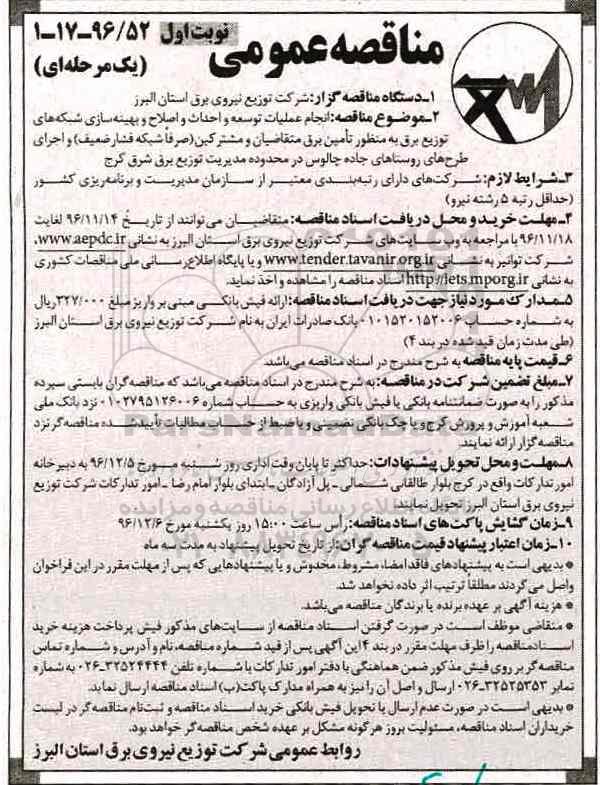 مناقصه عمومی
نوبت اول
۱-۱۷-۹۶/۵۲
(یک مرحله‌ای)
۱ـ دستگاه مناقصه گزار: شرکت توزیع نیروی برق استان البرز
۲ـ موضوع مناقصه: انجام عملیات توسعه و احداث و اصلاح و بهینه‌سازی شبکه‌های
توزیع برق به منظور تأمین برق متقاضیان و مشترکین (صرفاً شبکه فشار ضعیف) و اجرای
طرح‌های روستاهای جاده چالوس در محدوده مدیریت توزیع برق شرق کرج
۳ـ شرایط لازم: شرکت‌های دارای رتبه‌بندی معتبر از سازمان مدیریت و برنامه‌ریزی کشور
(حداقل رتبه ۵ رشته نیرو)
۴ـ مهلت خرید و محل دریافت اسناد مناقصه: متقاضیان می‌توانند از تاریخ ۹۶/۱۱/۱۴ لغایت
۹۶/۱۱/۱۸ با مراجعه به وب سایت‌های شرکت توزیع نیروی برق استان البرز به نشانی www.aepdc.ir،
شرکت توانیر به نشانی www.tender.tavanir.org.ir و یا پایگاه اطلاع‌رسانی ملی مناقصات کشوری
به نشانی http://iets.mporg.ir اسناد مناقصه را مشاهده و اخذ نمایند.
۵ـ مدارک مورد نیاز جهت دریافت اسناد مناقصه: ارائه فیش بانکی مبنی بر واریز مبلغ ۳۲۷/۰۰۰ ریال
به شماره حساب ۰۱۰۱۵۲۰۱۵۲۰۰۶ بانک صادرات ایران به نام شرکت توزیع نیروی برق استان البرز
(طی مدت زمان قید شده در بند ۴)
۶ـ قیمت پایه مناقصه به شرح مندرج در اسناد مناقصه می‌باشد.
۷ـ مبلغ تضمین شرکت در مناقصه: به شرح مندرج در اسناد مناقصه می‌باشد که مناقصه‌گران بایستی سپرده
مذکور را به صورت ضمانتنامه بانکی یا فیش بانکی واریزی به حساب شماره ۰۱۰۲۷۹۵۱۲۶۰۰۶ نزد بانک ملی
شعبه آموزش و پرورش کرج و یا چک بانکی تضمینی و یا ضبط از حساب مطالبات تأیید شده مناقصه گر نزد
مناقصه گزار ارائه نمایند.
۸ـ مهلت و محل تحویل پیشنهادات: حداکثر تا پایان وقت اداری روز شنبه مورخ ۹۶/۱۲/۵ به دبیرخانه
امور تدارکات واقع در کرج بلوار طالقانی شمالی ـ پل آزادگان ـ ابتدای بلوار امام رضا ـ امور تدارکات شرکت توزیع
نیروی برق استان البرز تحویل نمایند.
۹ـ زمان گشایش پاکت‌های اسناد مناقصه: رأس ساعت ۱۵:۰۰ روز یکشنبه مورخ ۹۶/۱۲/۶
۱۰ـ زمان اعتبار پیشنهاد قیمت مناقصه گران: از تاریخ تحویل پیشنهاد به مدت سه ماه
* بدیهی است به پیشنهادهای فاقد امضا، مشروط، مخدوش و یا پیشنهادهایی که پس از مهلت مقرر در این فراخوان
واصل می‌گردند مطلقاً ترتیب اثر داده نخواهد شد.
* هزینه آگهی بر عهده برنده یا برندگان مناقصه می‌باشد.
* متقاضی موظف است در صورت گرفتن اسناد مناقصه از سایت‌های مذکور فیش پرداخت هزینه خرید
اسناد مناقصه را ظرف مهلت مقرر در بند ۴ این آگهی پس از قید شماره مناقصه، نام و آدرس و شماره تماس
مناقصه گر بر روی فیش مذکور ضمن هماهنگی با دفتر امور تدارکات با شماره تلفن ۳۲۵۲۴۴۴۴-۰۲۶ به شماره
نمابر ۳۲۵۲۵۳۵۳-۰۲۶ ارسال و اصل آن را نیز به همراه مدارک پاکت (ب) اسناد مناقصه ارسال نماید.
* بدیهی است در صورت عدم ارسال یا تحویل فیش بانکی خرید اسناد مناقصه و ثبت‌نام مناقصه گر در لیست
خریداران اسناد مناقصه، مسئولیت بروز هرگونه مشکل بر عهده شخص مناقصه‌گر خواهد بود.
روابط عمومی شرکت توزیع نیروی برق استان البرز